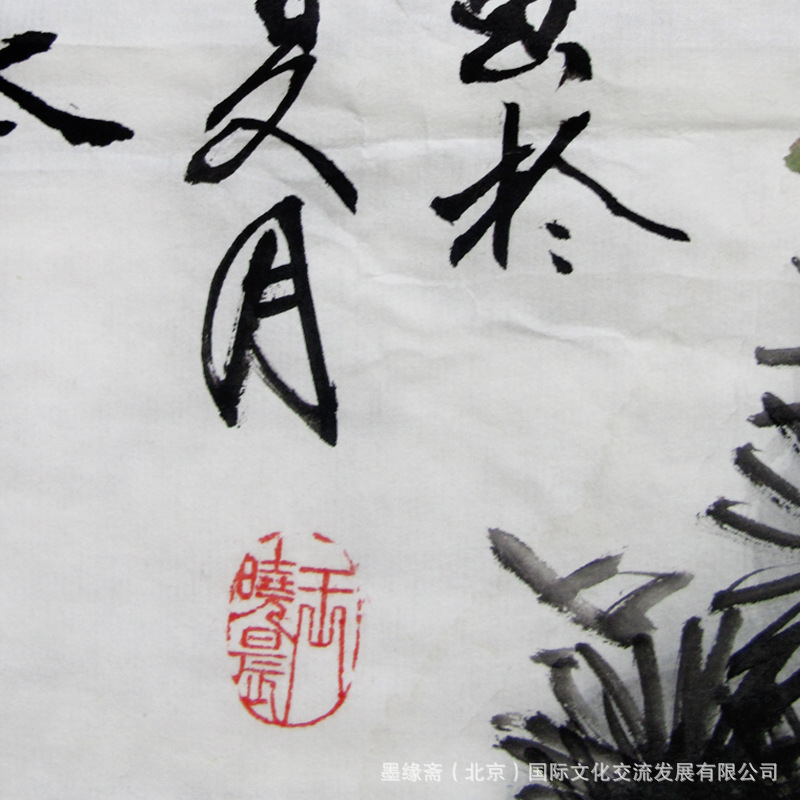 画於
夏月
曉晨
墨缘斋（北京）国际文化交流发展有限公司